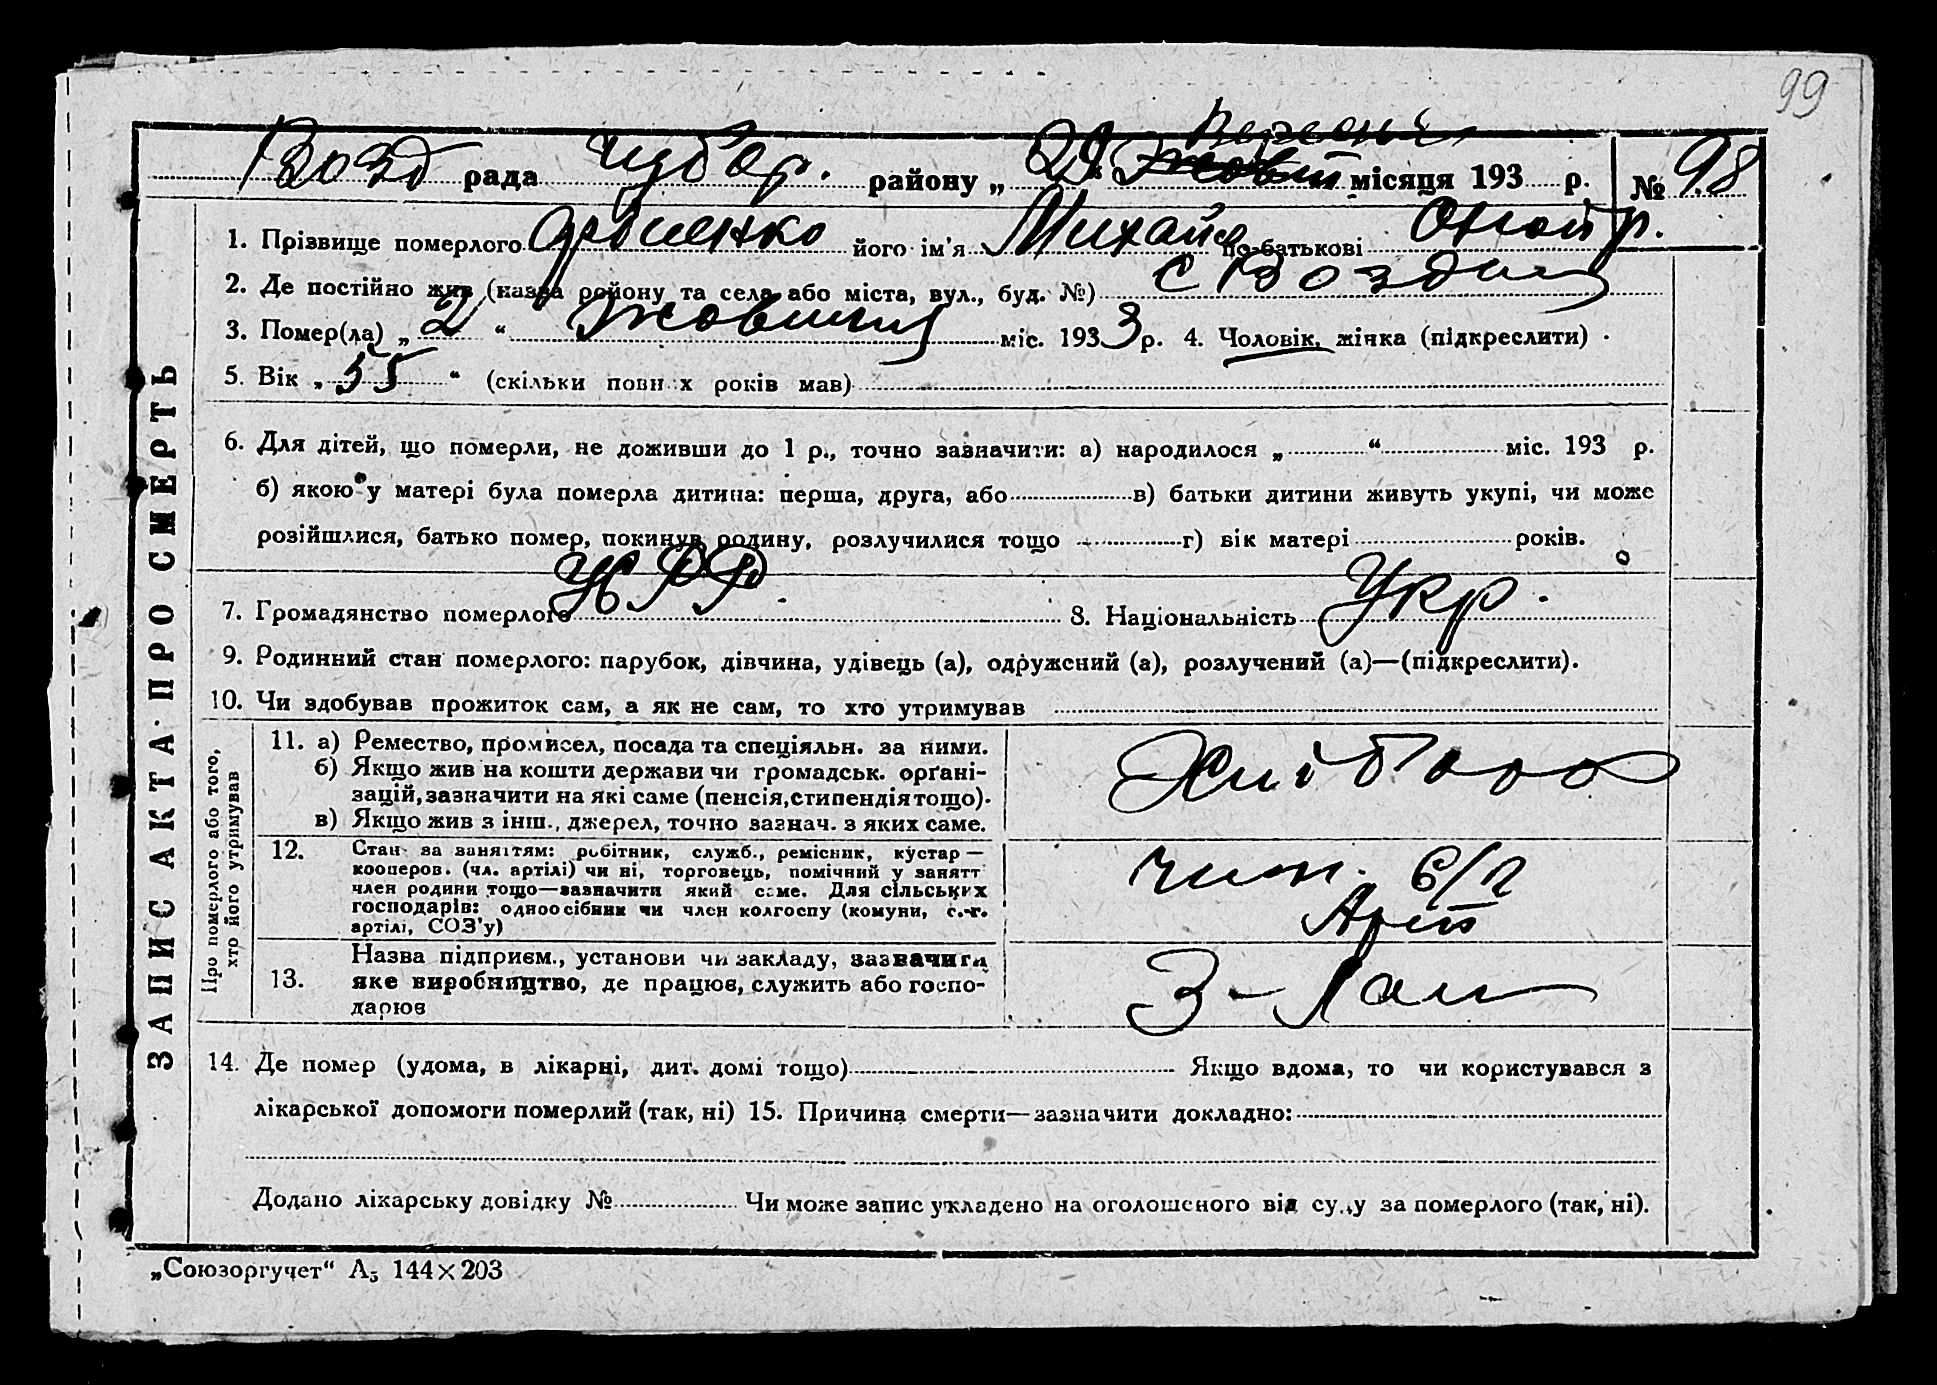 99
Возд рада Чубар. району „29“ Вересня Жовтн місяця 193 р. № 98
1. Прізвище померлого його ім'я Михайло по-батькові
2. Де постійно жив (назва району та села або міста, вул., буд. №) с Воздвиж
3. Помер(ла) „2“ Жовтня міс. 1933 р. 4. Чоловік, жінка (підкреслити)
5. Вік „55“ (скільки повних років мав)
6. Для дітей, що померли, не доживши до 1 р., точно зазначити: а) народилося „ “ міс. 193 р.
б) якою у матері була померла дитина: перша, друга, або в) батьки дитини живуть укупі, чи може
розійшлися, батько помер, покинув родину, розлучилися тощо г) вік матері років.
7. Громадянство померлого 8. Національність Укр.
9. Родинний стан померлого: парубок, дівчина, удівець (а), одружений (а), розлучений (а)—(підкреслити).
10. Чи здобував прожиток сам, а як не сам, то хто утримував
ЗАПИС АКТА ПРО СМЕРТЬ
Про померлого або того, хто його утримував
11. а) Ремество, промисел, посада та спеціяльн. за ними.
б) Якщо жив на кошти держави чи громадськ. орґані-
зацій, зазначити на які саме (пенсія, стипендія тощо).
в) Якщо жив з інш., джерел, точно зазнач. з яких саме.
Хлібороб
12. Стан за заняттям: робітник, служб., ремісник, кустар—
кооперов. (чл. артілі) чи ні, торговець, помічний у занятт
член родини тощо—зазначити який саме. Для сільських
господарів: одноосібник чи член колгоспу (комуни, с.-г.
артілі, СОЗ'у)
член. с/г
Артіл
13. Назва підприєм., установи чи закладу, зазначити
яке виробництво, де працює, служить або госпо-
дарює
З-Лан
14. Де помер (удома, в лікарні, дит. домі тощо) Якщо вдома, то чи користувався з
лікарської допомоги померлий (так, ні) 15. Причина смерти—зазначити докладно:
Додано лікарську довідку № Чи може запис укладено на оголошеного від суду за померлого (так, ні).
„Союзоргучет“ А₅ 144×203